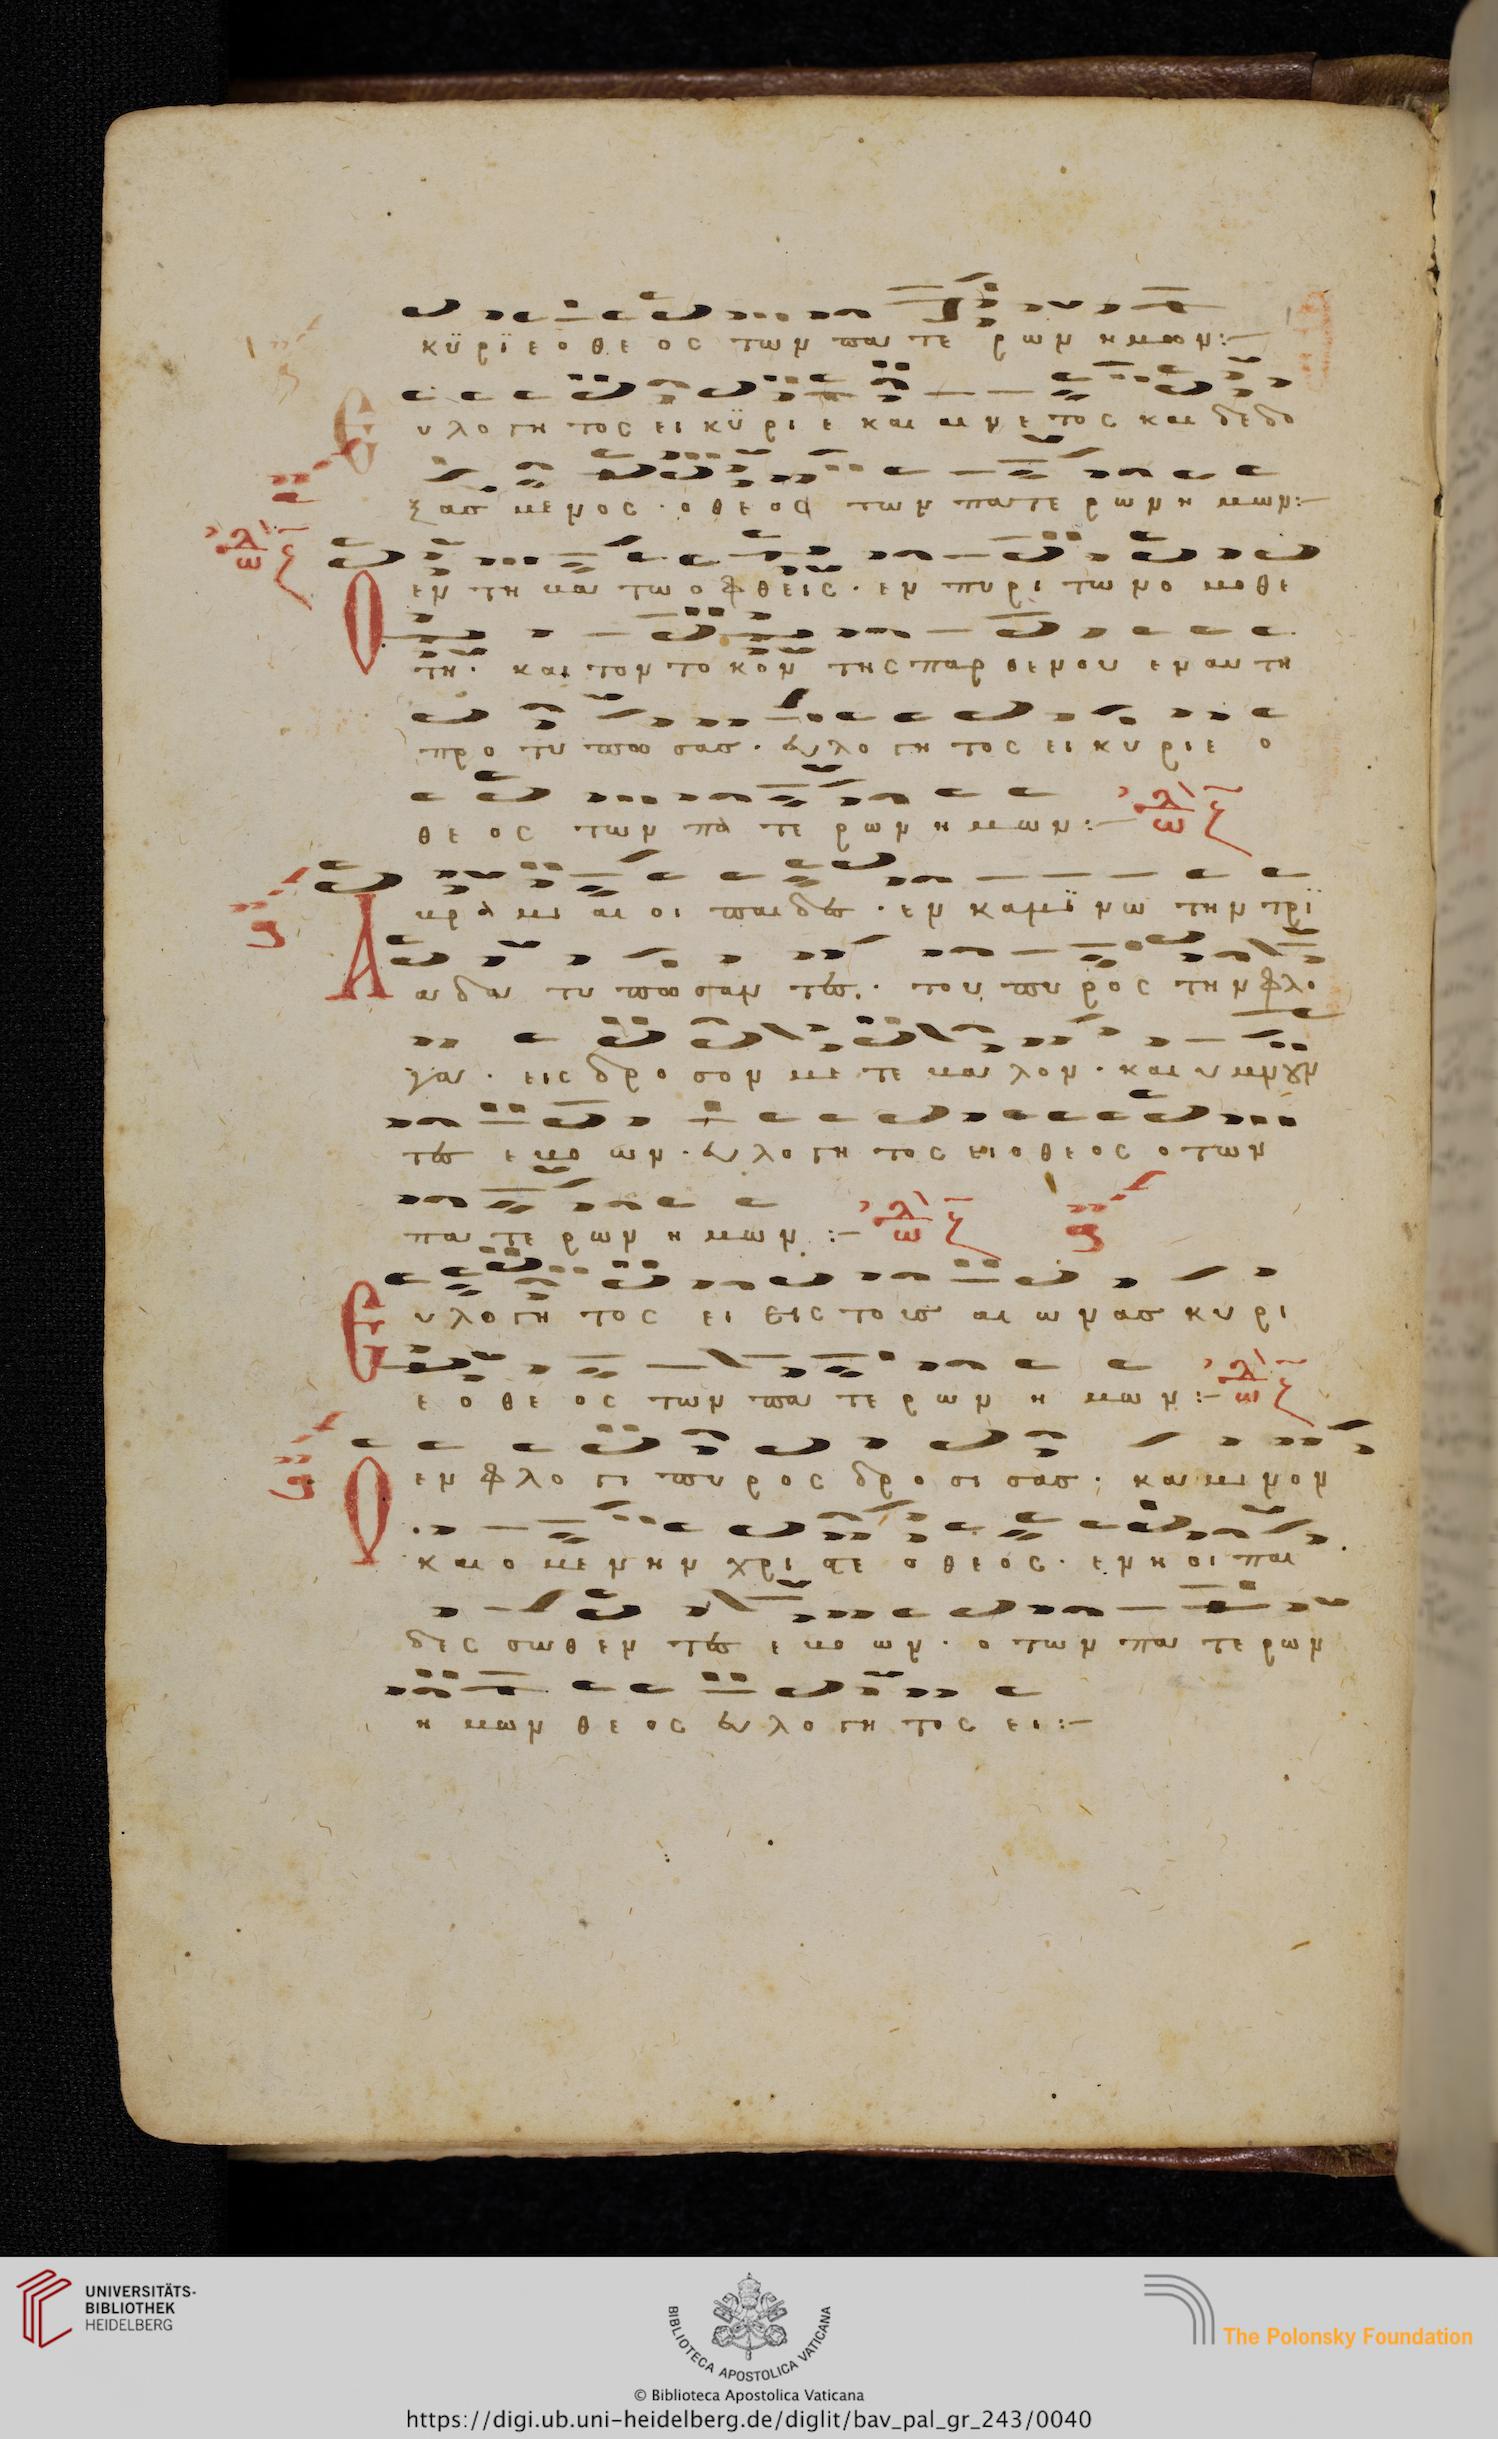 κϋ ρϊ ε ο θε ος των πα τε ρων ημων:–
Ε υ λο γη τος ει κϋ ρι ε και αι νε τος και δε δο
ξασ με νος · ο θε ος των πα τε ρων η μων:–
Ο εν τη βα τω ο φθεις · εν πυρι τω νο μοθε
τη · και τον το κον της παρ θε νου εν αυ τη
προ τυ πω σασ · ευ λο γη τος ει κυ ριε ο
θε ος των πα τε ρων η μων :–
Α βρα μι αι οι παι δες · εν κα μϊ νω την τρϊ
α δα τυ πω σαν τες · του πυ ρος την φλο
γα · εις δρο σον με τε βα λον · και υ μνουν
τες ε βο ων · ευ λο γη τος ει ο θε ος ο των
πα τε ρων η μων :–
Ε υ λο γη τος ει εις τουσ αι ω νασ κυ ρι
ε ο θε ος των πα τε ρων η μων :–
Ο εν φλο γι πυ ρος δρο σι σασ · και μι νον
και ο με νην χρι στε ο θε ος · εν η οι παι
δες σωθεν τες ε βο ων · ο των πα τε ρων
η μων θε ος ευ λο γη τος ει :–
UNIVERSITÄTS-
BIBLIOTHEK
HEIDELBERG
BIBLIOTECA APOSTOLICA VATICANA
The Polonsky Foundation
© Biblioteca Apostolica Vaticana
https://digi.ub.uni-heidelberg.de/diglit/bav_pal_gr_243/0040